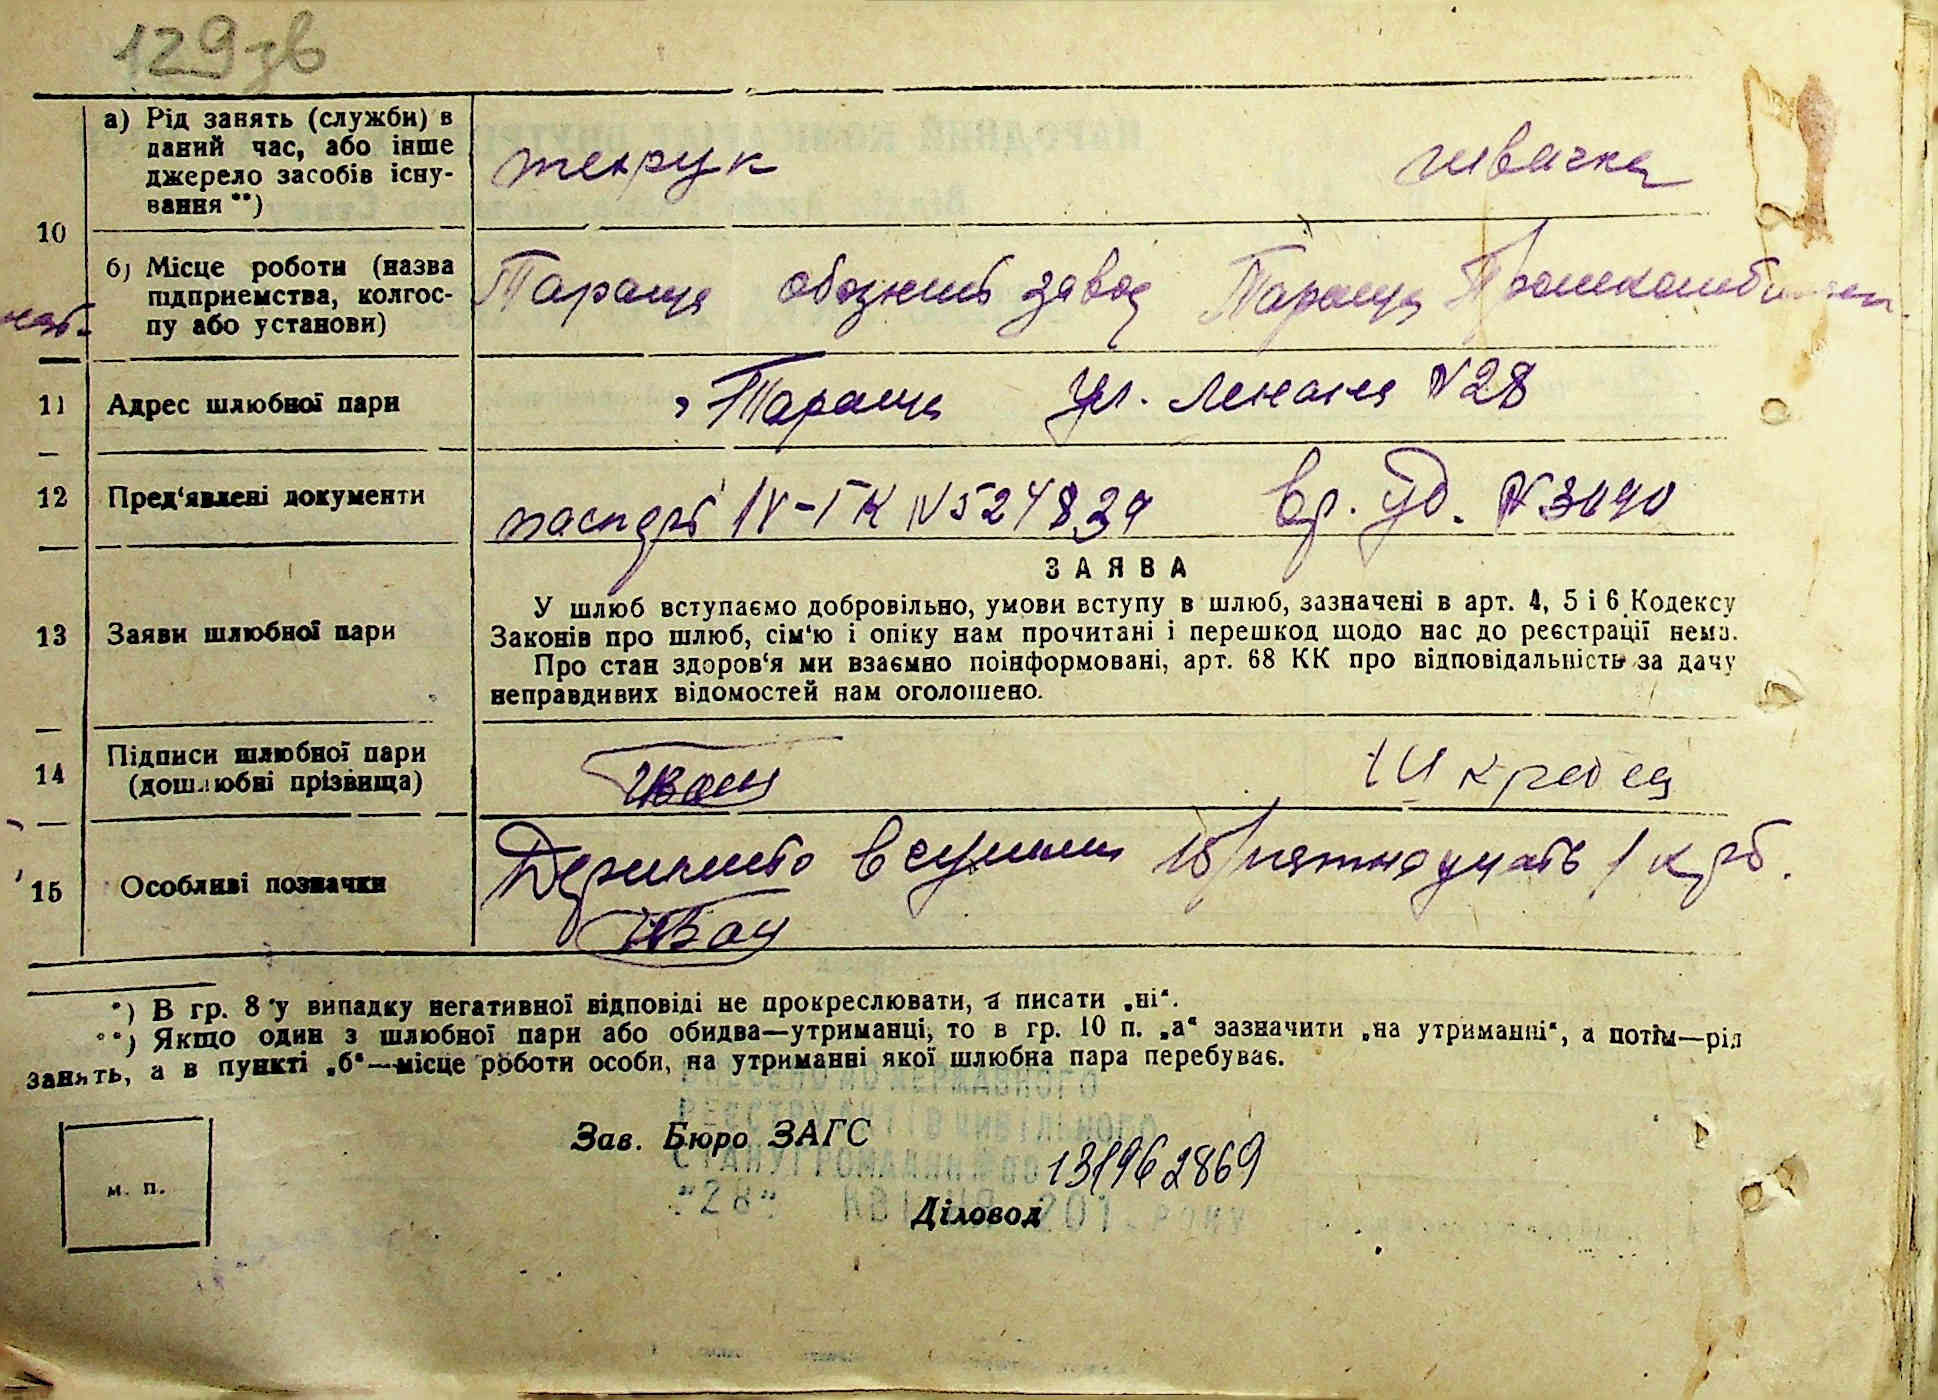 129зв
а) Рід занять (служби) в
даний час, або інше
джерело засобів існу-
вання **)
швачка
10
б) Місце роботи (назва
підприємства, колгос-
пу або установи)
Тараща обозний завод Тараща Промкомбинат
11 Адрес шлюбної пари Тараща Ул. Ленина N 28
12 Пред‘явлені документи паспорт IV-ГК N 524839 Вр. Уд. N 3090
ЗАЯВА
13 Заяви шлюбної пари
У шлюб вступаємо добровільно, умови вступу в шлюб, зазначені в арт. 4, 5 і 6 Кодексу
Законів про шлюб, сім‘ю і опіку нам прочитані і перешкод щодо нас до реєстрації нема.
Про стан здоров‘я ми взаємно поінформовані, арт. 68 КК про відповідальність за дачу
неправдивих відомостей нам оголошено.
14 Підписи шлюбної пари
(дошлюбні прізвища)
15 Особливі позначки
в сумми 15 /пятнадцать/ крб.
*) В гр. 8 у випадку негативної відповіді не прокреслювати, а писати „ні“.
**) Якщо один з шлюбної пари або обидва—утриманці, то в гр. 10 п. „а“ зазначити „на утриманні“, а потім—рід
занять, а в пункті „б“—місце роботи особи, на утриманні якої шлюбна пара перебуває.
ВНЕСЕНО ДО ДЕРЖАВНОГО
РЕЄСТРУ АКТІВ ЦИВІЛЬНОГО
Зав. Бюро ЗАГС
СТАНУ ГРОМАДЯН
131962869
"28" КВІТНЯ 201 РОКУ
Діловод
м. п.